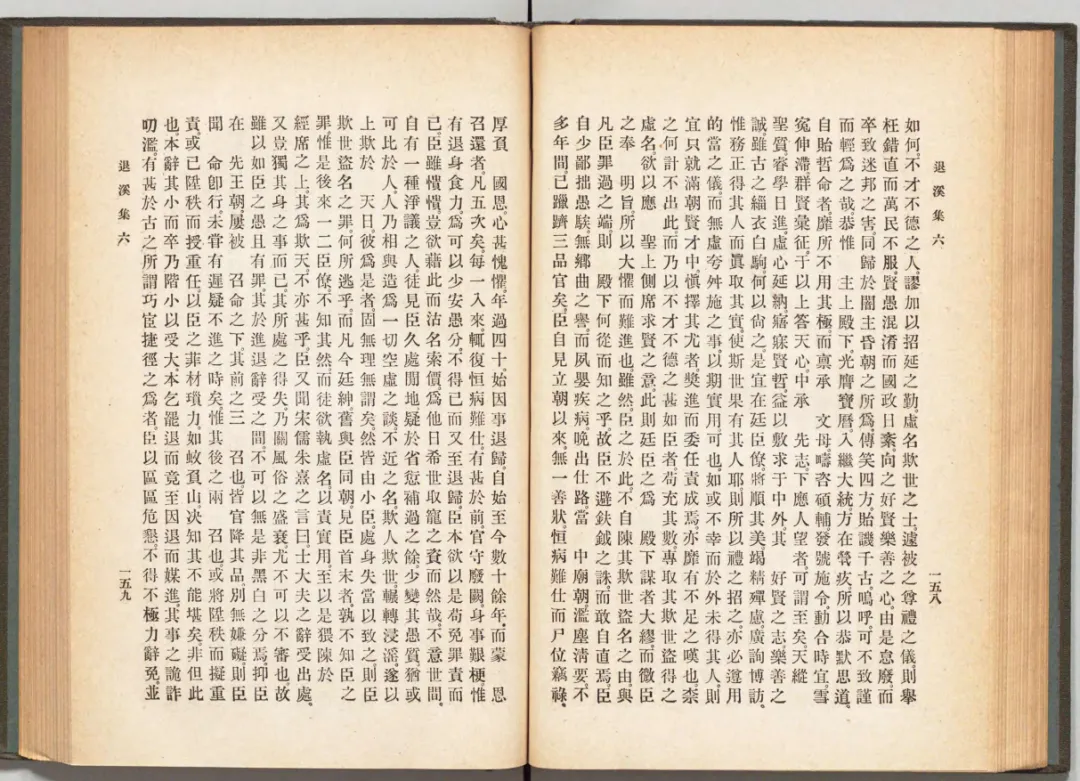 退溪集 六
一五八
如何。不才不德之人。謬加以招延之勤。虛名欺世之士。遽被之尊禮之儀。則舉
枉錯直而萬民不服。賢愚混淆而國政日紊。向之好賢樂善之心。由是怠廢而
卒致迷邦之害。同歸於闇主昏朝之所爲。傳笑四方。貽譏千古。嗚呼。可不致謹
而輕爲之哉。恭惟 主上殿下。光膺寶曆。入繼大統。方在煢疚。所以恭默思道。
自貽哲命者。靡所不用其極。而稟承 文母。疇咨碩輔。發號施令。動合時宜。雪
冤伸滯。群賢彙征。于以上答天心。中承 先志。下應人望者。可謂至矣。天縱
聖質。睿學日進。虛心延納。寤寐賢哲。益以敷求于中外。其 好賢之志。樂善之
誠。雖古之緇衣白駒。何以尙之。是宜在廷臣僚。將順其美。竭精殫慮。廣詢博訪。
惟務正得其人而眞取其實。使斯世果有其人耶。則所以禮之招之。亦必遵用
的當之儀。而無虛夸舛施之事。以期實用可也。如或不幸而於外未得其人。則
宜只就滿朝賢才中。愼擇其尤者。奬進而委任責成焉。亦靡有不足之嘆也。柰
之何計不出此。而乃以不才不德之甚如臣者。苟充其數。專取其欺世盜得之
虛名。欲以應 聖上側席求賢之意。此則廷臣之爲 殿下謀者大繆。而微臣
之奉 明旨。所以大懼而難進也。雖然。臣之於此。不自陳其欺世盜名之由。與
凡臣罪過之端。則 殿下何從而知之乎。故臣不避鈇鉞之誅。而敢自直焉。臣
自少鄙拙愚騃。無鄉曲之譽。而夙嬰疾病。晚出仕路。當 中廟朝。濫塵淸要。不
多年間。已躐躋三品官矣。臣自見立朝以來。無一善狀。恒病難仕。而尸位竊祿。
厚負 國恩。心甚愧懼。年過四十。始因事退歸。自始至今數十餘年。而蒙 恩
召還者。凡五次矣。每一入來。輒復恒病難仕。有甚於前。官守廢闕。身事艱梗。惟
有退身食力。爲可以少安愚分。不得已而又至退歸。臣本欲以是苟免罪責而
已。臣雖憒憒。豈欲藉此而沽名索價。爲他日希世取寵之資而然哉。不意世間。
自有一種淨議之人。徒見臣久處閒地。疑於省愆補過之餘。少變其愚質。猶或
可比於人。人乃相與造爲一切空虛之談。不近之名。欺人欺世。輾轉浸溢。遂以
上欺於 天日。彼爲是者。固無理無謂矣。然皆由小臣。處身失當以致之。則臣
欺世盜名之罪。何所逃乎。而凡今廷紳。舊與臣同朝。見臣首末者。孰不知臣之
罪。惟是後來一二臣僚。不知其然。而徒欲執虛名。以責實用。至以是猥陳於
經席之上。其爲欺天。不亦甚乎。臣又聞宋儒朱熹之言曰。士大夫之辭受出處。
又豈獨其身之事而已。其所處之得失。乃關風俗之盛衰。尤不可以不審也。故
雖以如臣之愚且有罪。其於進退辭受之間。不可以無是非黑白之分焉。抑臣
在 先王朝。屢被 召命之下。其前之三 召也。皆官降其品。別無嫌礙。則臣
聞 命卽行。未甞有遲疑不進之時矣。惟其後之兩 召也。或將陞秩而擬重
責。或已陞秩而授重任。以臣之菲材瑣力。如蚊負山。決知其不能堪矣。非但此
也。本辭其小而卒乃階小以受大。本乞罷退而竟至因退而媒進。其事之詭詐
叨濫。有甚於古之所謂巧宦捷徑之爲者。臣以區區危懇。不得不極力辭免。並
退溪集 六
一五九